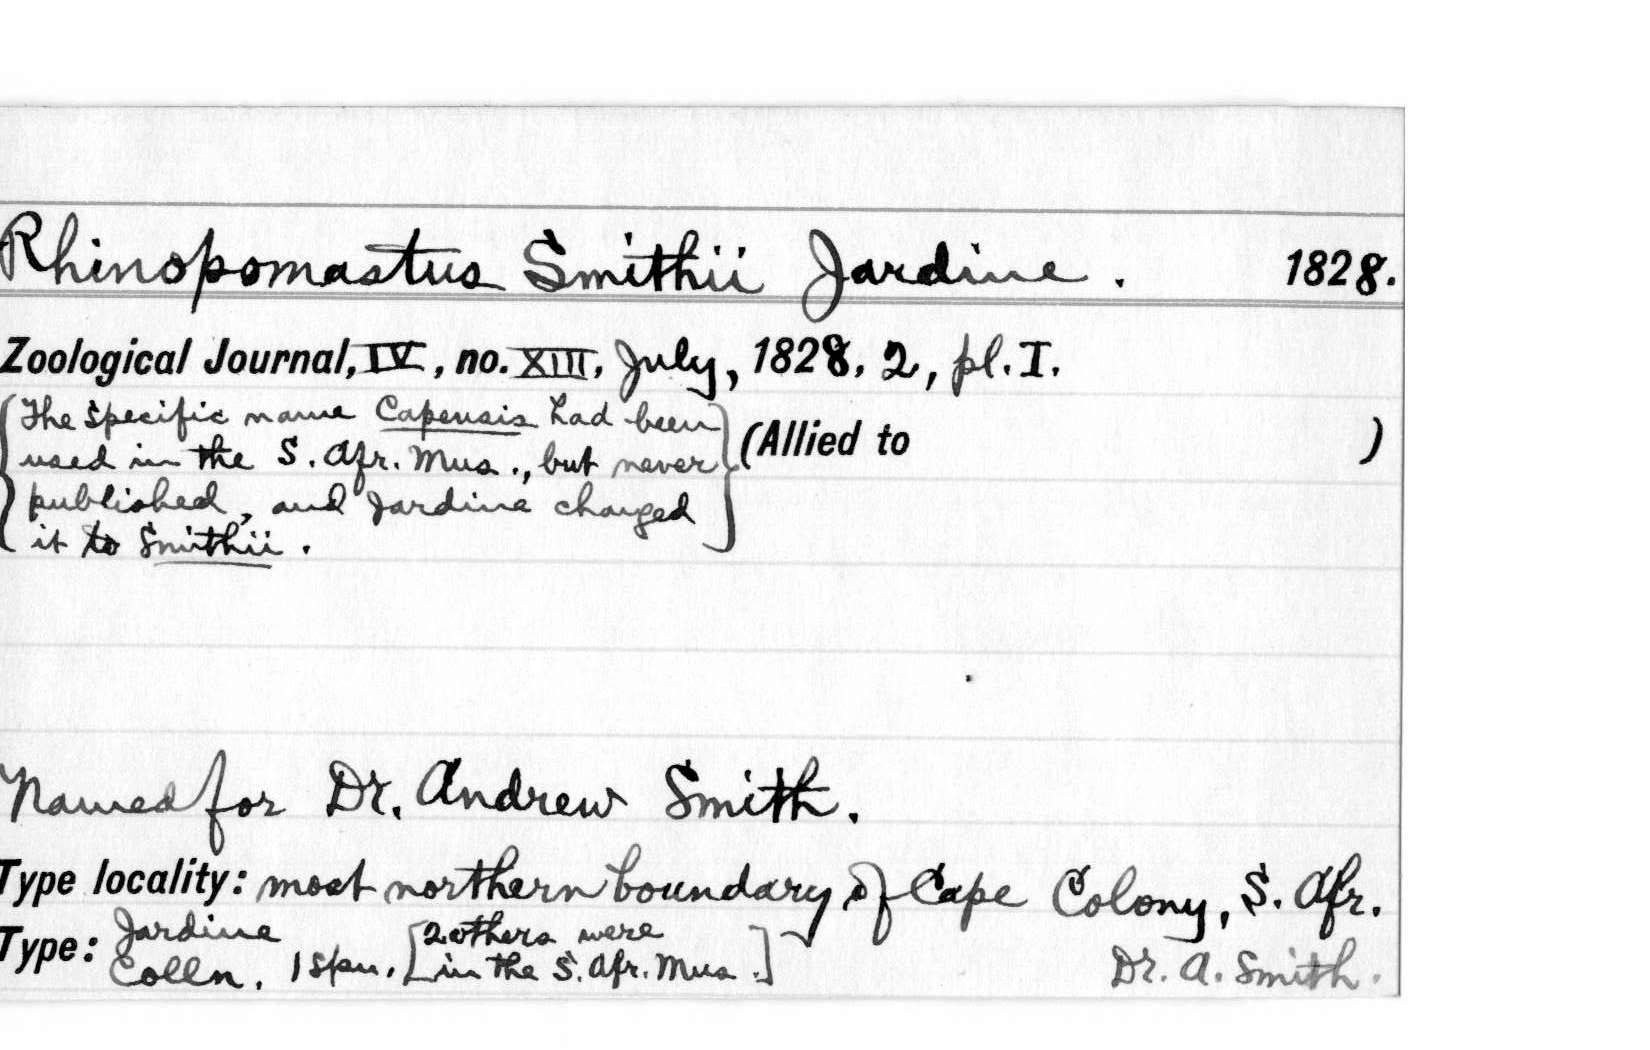 Rhinopomastus Smithii Jardine. 1828.
Zoological Journal, IV, no. XIII, July, 1828, 2, pl. I.
{The specific name Capensis had been
used in the S. Afr. Mus., but never} (Allied to )
published, and Jardine changed
it to Smithii.
Named for Dr. Andrew Smith.
Type locality: most northern boundary of Cape Colony, S. Afr.
Type: Jardine Colln. 1 spn. [2 others were
in the S. Afr. Mus.] Dr. A. Smith.